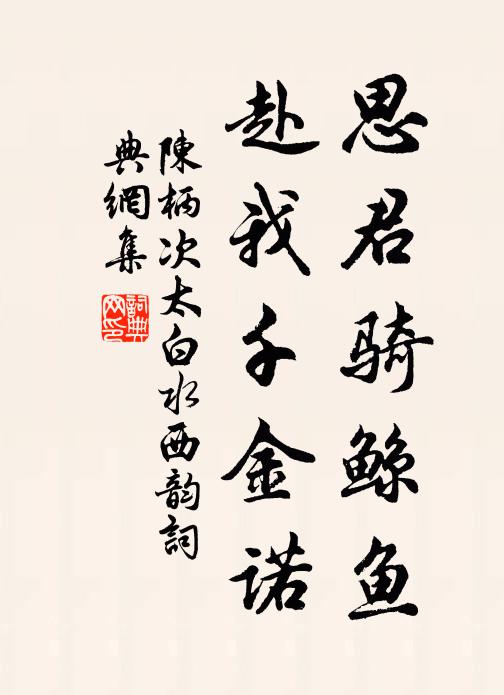 思君骑鲸鱼
赴我千金诺
陳柄次太白水西韵詞
典網集
詞典网印